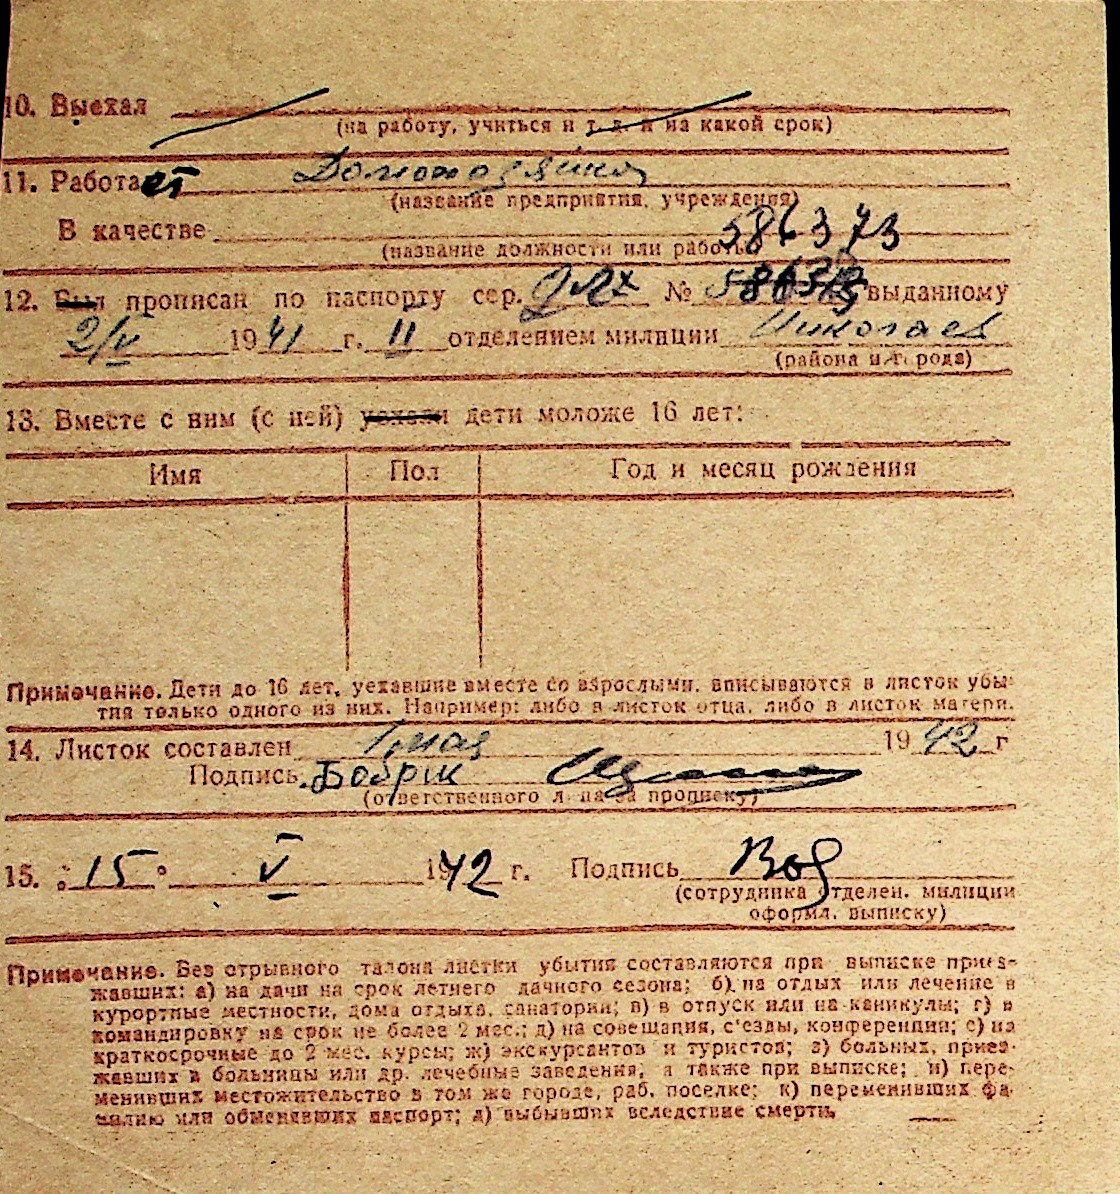 10. Выехал
(на работу, учиться и т. д. и на какой срок)
11. Работает Домохозяйка
(название предприятия, учреждения)
В качестве
(название должности или работы) 586373
12. Был прописан по паспорту сер. № выданному
2/V 1941 г. II отделением милиции Николаев
(района и города)
13. Вместе с ним (с ней) уехали дети моложе 16 лет:
Имя Пол Год и месяц рождения
Примечание. Дети до 16 лет, уехавшие вместе со взрослыми, вписываются в листок убы-
тия только одного из них. Например: либо в листок отца, либо в листок матери.
14. Листок составлен 1 мая 1942 г
Подпись Бобрик
(ответственного лица за прописку)
15. 15 V 1942 г. Подпись
(сотрудника отделен. милиции
оформл. выписку)
Примечание. Без отрывного талона листки убытия составляются при выписке приез-
жавших: а) на дачи на срок летнего дачного сезона; б) на отдых или лечение в
курортные местности, дома отдыха, санатории; в) в отпуск или на каникулы; г) в
командировку на срок не более 2 мес.; д) на совещания, с'езды, конференции; е) на
краткосрочные до 2 мес. курсы; ж) экскурсантов и туристов; з) больных, приез-
жавших в больницы или др. лечебные заведения, а также при выписке; и) пере-
менивших местожительство в том же городе, раб. поселке; к) переменивших фа-
милию или обменявших паспорт; л) выбывших вследствие смерти.